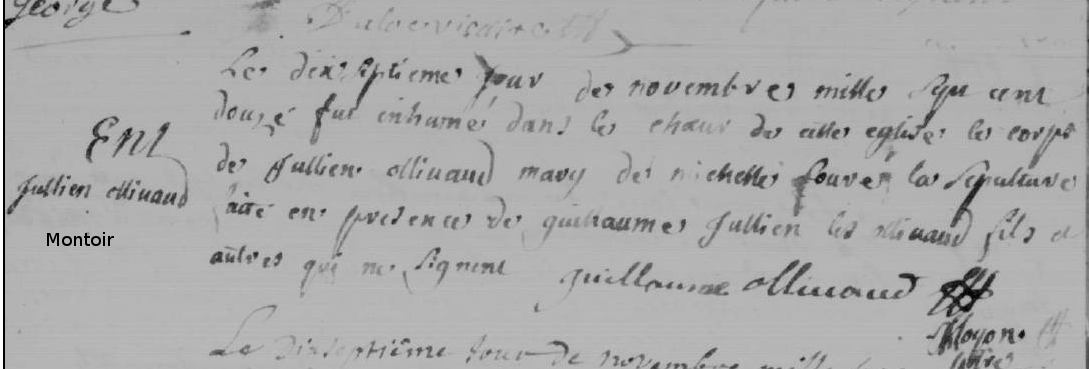 George
Le dixseptieme jour de novembre mille sept cent
douze fut inhumé dans le chœur de cette eglise le corps
Ent
de Jullien ollivaud mary de michelle fouré la sepulture
Jullien ollivaud
faite en presence de guillaume Jullien les ollivaud fils et
Montoir
autres qui ne signent guillaume ollivaud
Moyon
Le Dixseptiême Jour de novembre mille